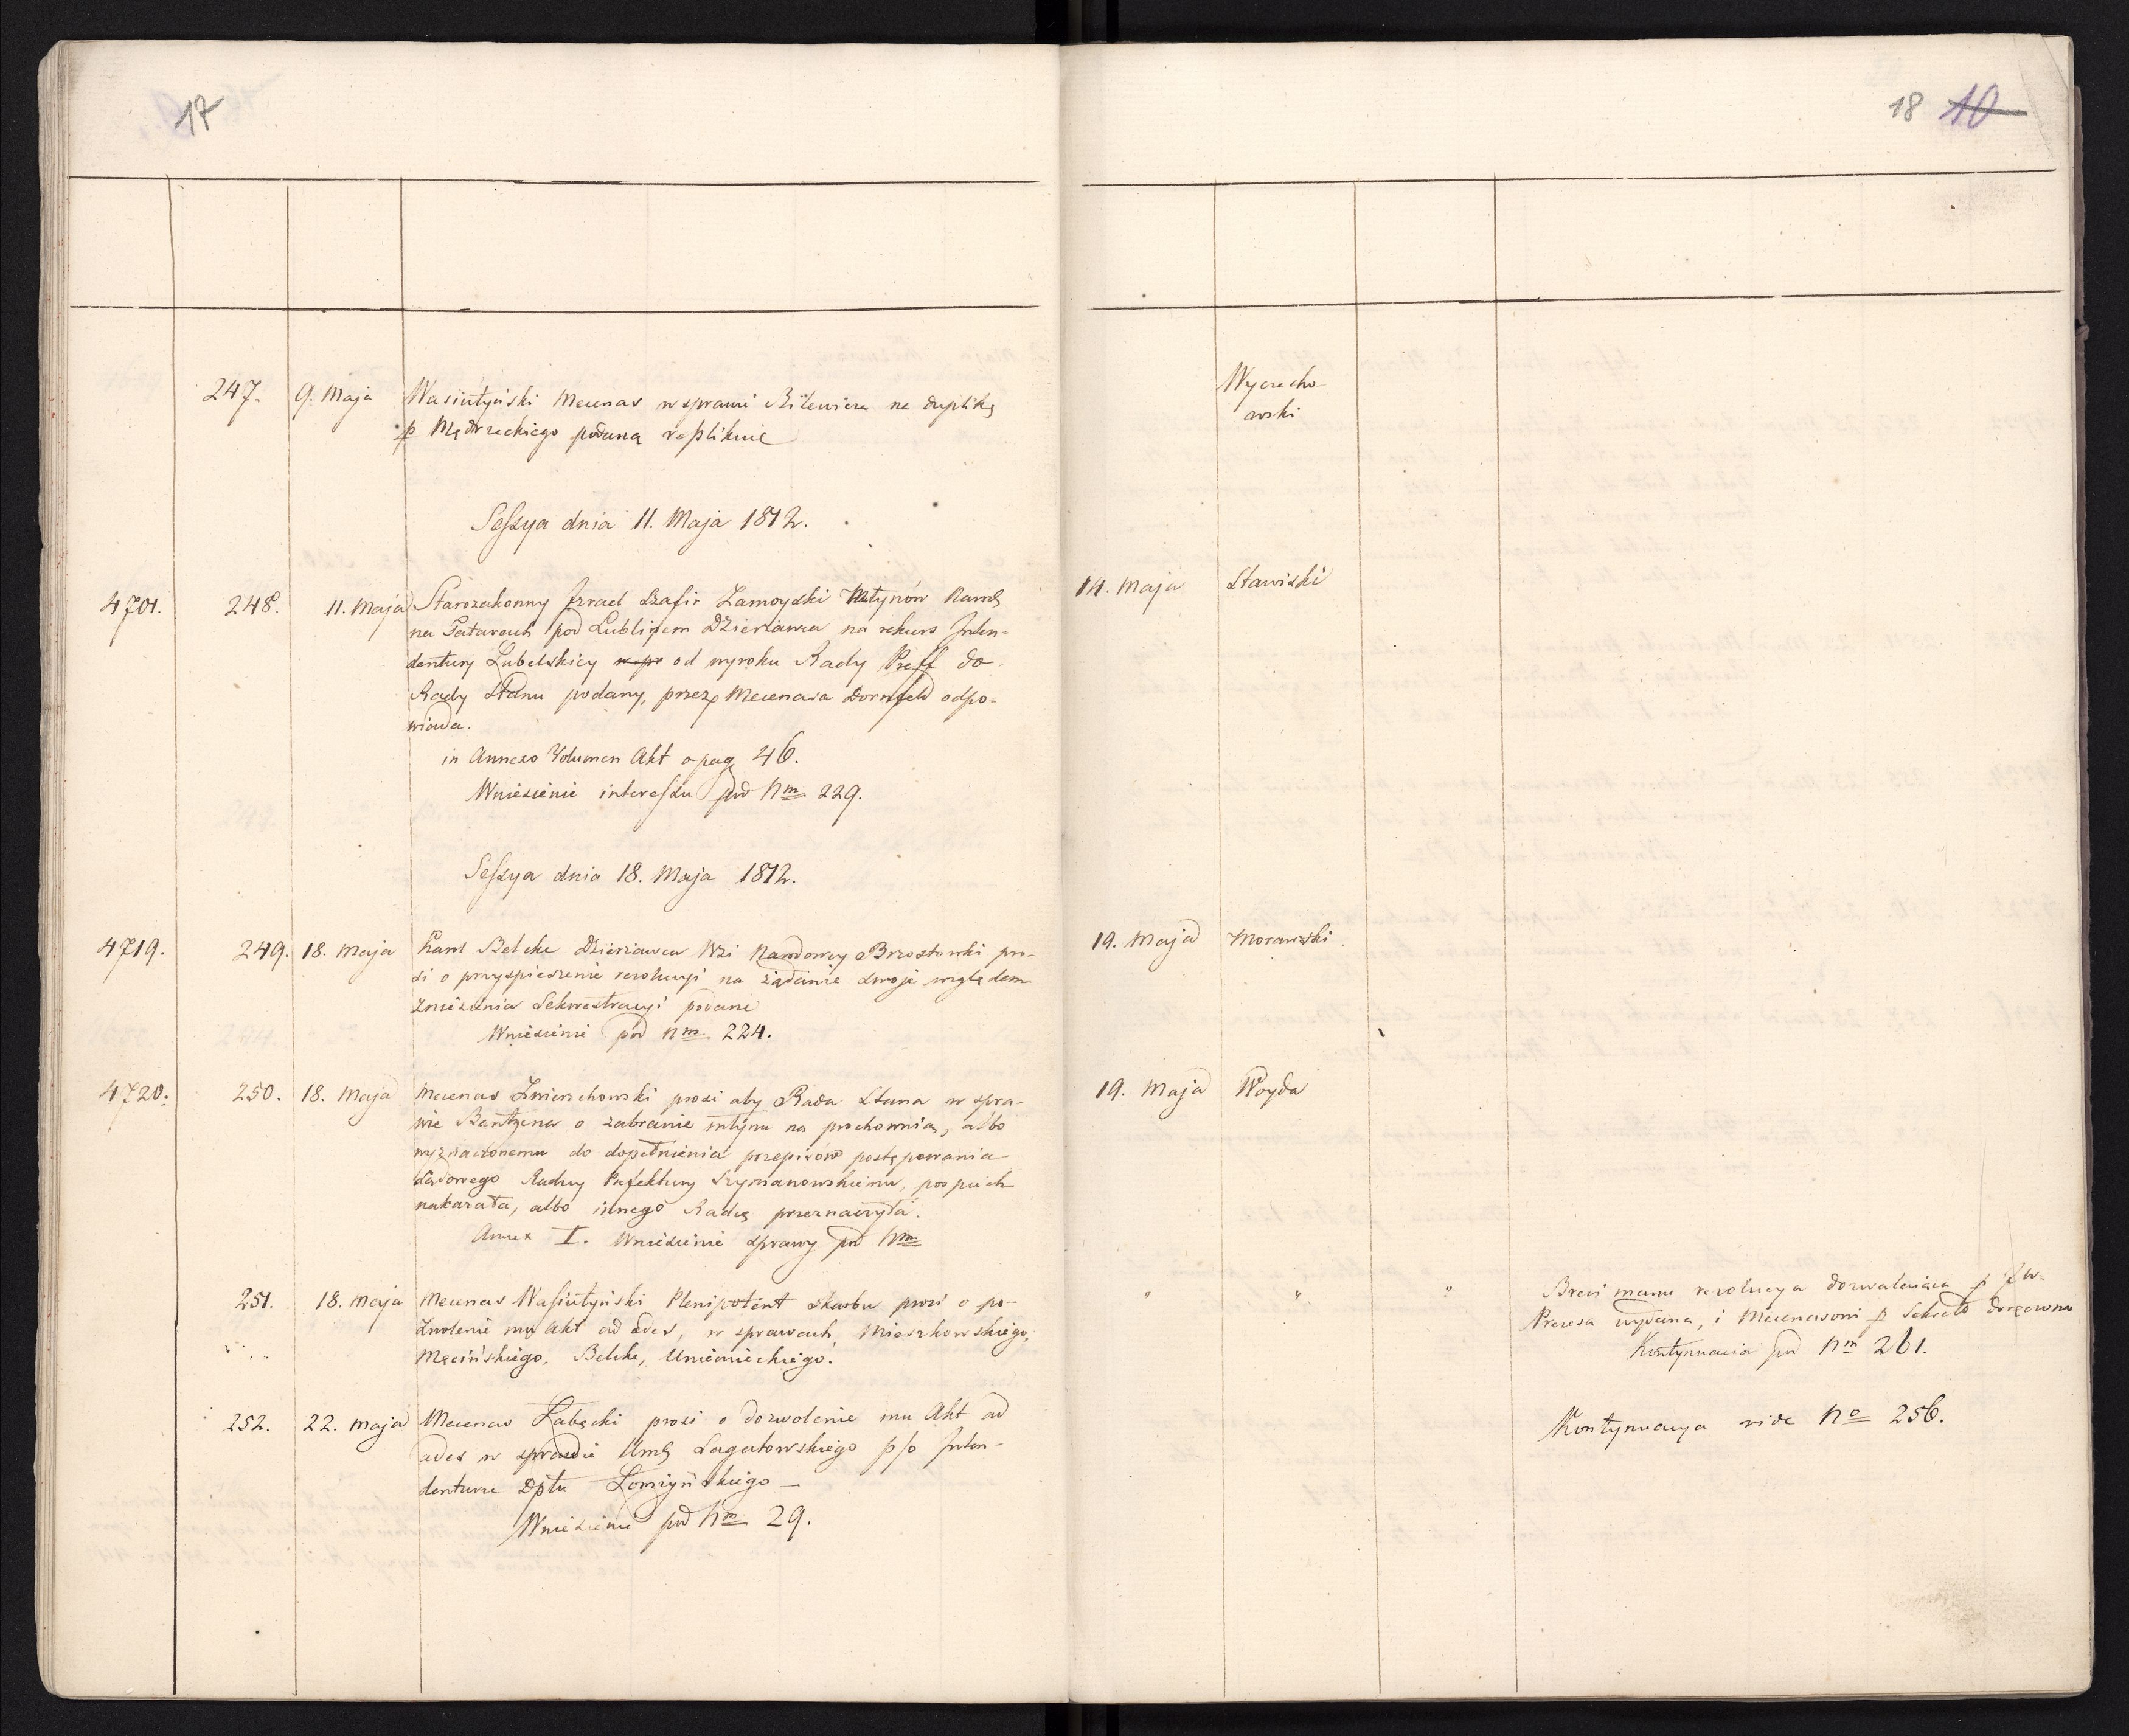 17
247. 9. Maja Wasiutyński Mecenas w sprawie na duplikę
p Mędrzeckiego podaną replikuie
Sessya dnia 11. Maja 1812.
4701. 248. 11. Maja Starozakonny Izrael Szafir Zamoyski Młynów Narod
na Tatarach pod Lublinem Dzierżawca na rekurs Inten-
dentury Lubelskiey od wyroku Rady Preff do
Rady Stanu podany, przez Mecenasa Dornfeld odpo-
wiada.
in Annexo Volumen Akt o pag 46.
Wniesienie interessu pod Nm 229.
Sessya dnia 18. Maja 1812.
4719. 249. 18. Maja Karol Belcke Dzierżawca Wsi Narodowey Brzostowki pro-
si o przyspieszenie rezolucyi na żądanie swoje względem
zniesienia Sekwestracyi podane
Wniesienie pod Nm 224.
4720. 250. 18. Maja Mecenas Zwierzchowski prosi aby Rada Stanu w spra-
wie Bantzena o zabranie młynu na prochownią, albo
wyznaczonemu do dopełnienia przepisów postępowania
Sądowego Radcy Prefektury Szymanowskiemu, pospiech
nakazała, albo innego Radcę przeznaczyła.
Annex I. Wniesienie sprawy pod Nm
251. 18. Maja Mecenas Wasiutyński Plenipotent skarbu prosi o po-
zwolenie mu Akt ad aedes, w sprawach, Mieszkowskiego,
Męcińskiego, Belcke, Uniemieckiego.
252. 22. Maja Mecenas Łabęcki prosi o dozwolenie mu Akt ad
aedes w sprawie Lagatowskiego p/o Inten-
denturze Dptu Łomżyńskiego —
Wniesienie pod Nm 29.
18 10
Wyczecho-
wski
14. Maja Stawiski
19. Maja Morawski
19. Maja Woyda
" " " Brevi manu rezolucya dozwalaiąca p JW-
Prezesa wydana, i Mecenasowi p Sekreto doręczona
Kontynuacia pod Nm 261.
Kontynuacya vide No 256.